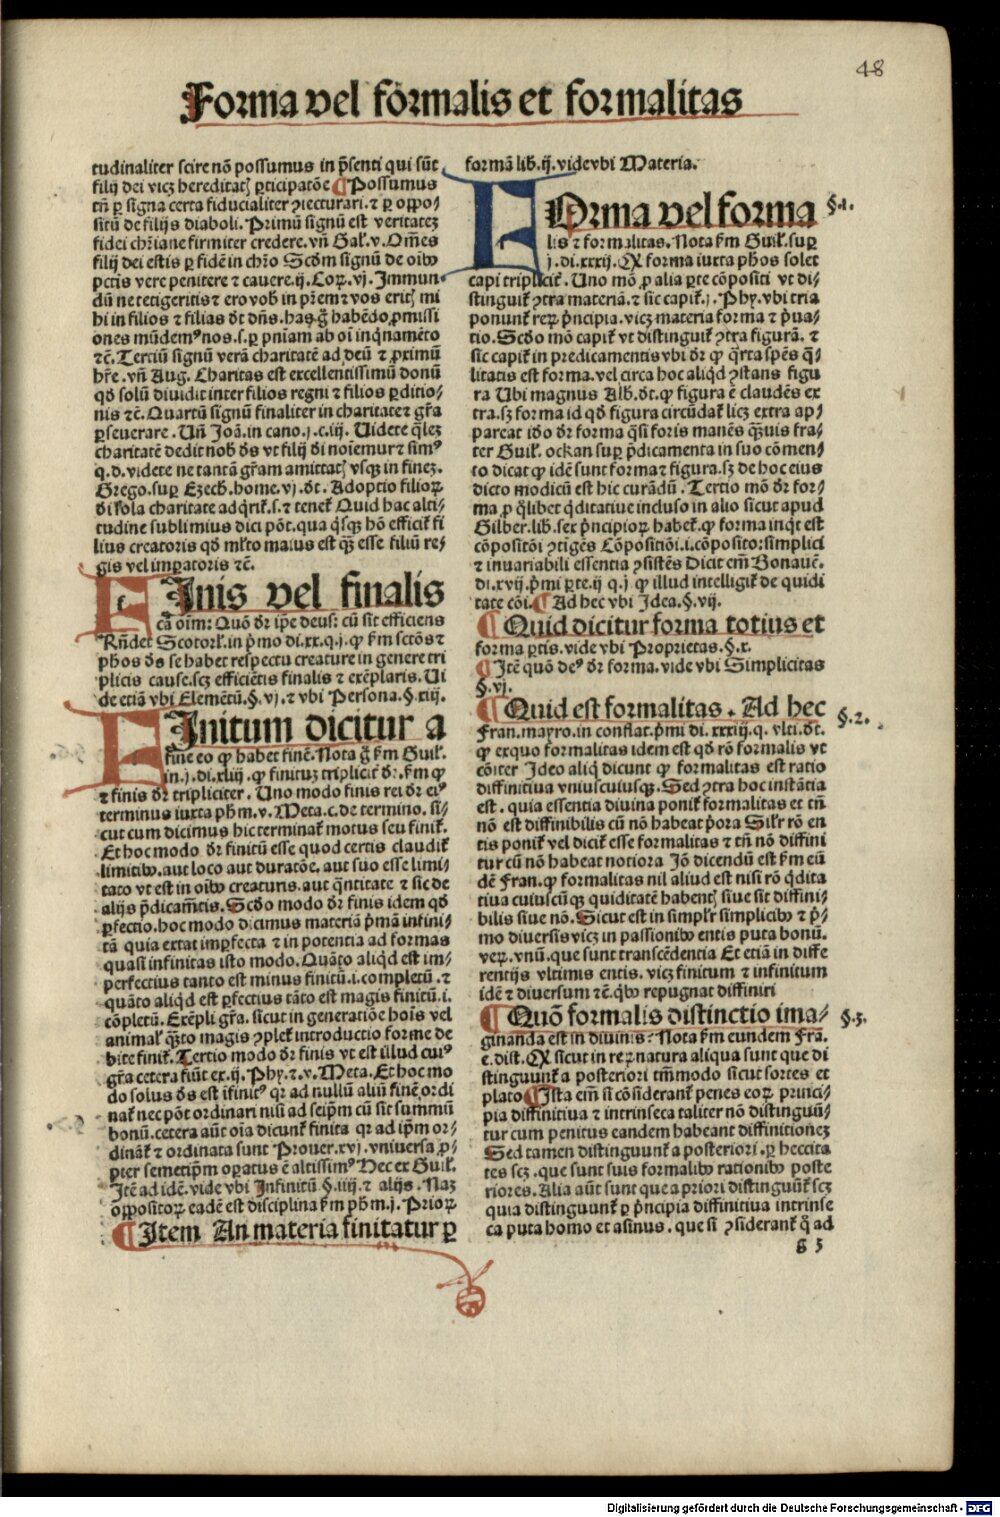 48
Forma vel formalis et formalitas
tudinaliter scire nō possumus in p̄senti qui sūt
filij dei vicꝫ hereditatꝭ ꝑticipatōe ¶ Possumus
tn̄ ꝑ signa certa fiducialiter ꝯiecturari. ⁊ ꝑ oppo⸗
sitū de filijs diaboli. Primū signū est veritateꝫ
fidei chr̄iane firmiter credere. vn̄ Gal̄. v. Om̄es
filij dei estis ꝑ fidē in chr̄o Scd̄m signū de oībꝫ
pctīs vere penitere ⁊ cauere. ij. Coꝝ. vj. Immun⸗
dū ne tetigeritis ⁊ ero vob̄ in pr̄em ⁊ vos eritꝭ mi
hi in filios ⁊ filias dt̄ dn̄s. has g̊ habēdo ꝓmissi
ones mūdemꝰ nos. s. ꝑ pn̄iam ab oī inq̄namēto
⁊c̄. Tertiū signū verā charitatē ad deū ⁊ ꝓximū
hr̄e. vn̄ Aug. Charitas est excellentissimū donū
qd̄ solū diuidit inter filios regni ⁊ filios ꝑditio⸗
nis ⁊c̄. Quartū signū finaliter in charitate ⁊ gr̄a
ꝑseuerare. Un̄ Joā. in cano. j. c. iij. Uidete q̄leꝫ
charitatē dedit nob̄ ds̄ vt filij dei noīemur ⁊ simꝰ
q. d. videte ne tantā gr̄am amittatꝭ vsqꝫ in fineꝫ.
Grego. suꝑ Ezech. home. vj. dt̄. Adoptio filioꝝ
dei sola charitate adq̄rit̄. s. ⁊ tenet̄ Quid hac alti⸗
tudine sublimius dici pōt. qua q̄sqꝫ hō efficit̄ fi
lius creatoris qd̄ ml̄to maius est qꝫ̄ esse filiū re⸗
gis vel imꝑatoris ⁊c̄.
FInis vel finalis
cā oīm: Quō dr̄ ip̄e deus: cū sit efficiens
Rn̄det Scotorl̄. in p̄mo di. xx. q. j. ꝙ fm̄ sctōs ⁊
phōs ds̄ se habet respectu creature in genere tri
plicis cause. scꝫ efficiētis finalis ⁊ exēplaris. Ui
de etiā vbi Elemētū. §. vj. ⁊ vbi Persona. §. xiij.
FInitum dicitur a
fine eo ꝙ habet finē. Nota g̊ fm̄ Guil̄.
in. j. di. xliij. ꝙ finituꝫ triplicit̄ dr̄. fm̄ ꝙ
⁊ finis dr̄ tripliciter. Uno modo finis rei dr̄ eiꝰ
terminus iuxta phm̄. v. Meta. c. de termino. si⸗
cut cum dicimus hic terminat̄ motus seu finit̄.
Et hoc modo dr̄ finitū esse quod certis claudit̄
limitibꝫ. aut loco aut duratōe. aut suo esse limi⸗
tato vt est in oībꝫ creaturis. aut q̄ntitate ⁊ sic de
alijs p̄dicam̄tis. Scd̄o modo dr̄ finis idem qd̄
ꝑfectio. hoc modo dicimus materiā p̄mā infini⸗
tā quia extat imꝑfecta ⁊ in potentia ad formas
quasi infinitas isto modo. Quāto aliqd̄ est im⸗
perfectius tanto est minus finitū. i. completū. ⁊
quāto aliqd̄ est ꝑfectius tāto est magis finitū. i.
cōpletū. Exēpli gr̄a. sicut in generatiōe hoīs vel
animal̄ qꝫ̄to magis ꝯplet̄ introductio forme de
bite finit̄. Tertio modo dr̄ finis vt est illud cuiꝰ
gr̄a cetera fiūt ex. ij. Phy. ⁊. v. Meta. Et hoc mo
do solus ds̄ est īfinitꝰ qr̄ ad nullū aliū finē ordi
nat̄ nec pōt ordinari nisi ad seip̄m cū sit summū
bonū. cetera aūt oīa dicunt̄ finita qr̄ ad ip̄m or⸗
dinant̄ ⁊ ordinata sunt Prouer. xvj. vniuersa ꝓ⸗
pter semetip̄m oꝑatus ē altissimꝰ Hec ex Guil̄.
Itē ad idē. vide vbi Infinitū §. iiij. ⁊ alijs. Naꝫ
oppositoꝝ eadē est disciplina fm̄ phm̄. j. Prioꝝ
¶ Item An materia finitatur ꝑ
formā lib. ij. vide vbi Materia.
FOrma vel forma
lis ⁊ formalitas. Nota fm̄ Guil̄. suꝑ
j. di. xxxij. Ꝙ forma iuxta phōs solet
capi triplicit̄. Uno mō ꝓ alia ꝑte cōpositi vt di⸗
stinguit̄ ꝯtra materiā. ⁊ sic capit̄. j. Phy. vbi tria
ponunt̄ reꝝ p̄ncipia. vicꝫ materia forma ⁊ p̄ua⸗
tio. Scd̄o mō capit̄ vt distinguit̄ ꝯtra figurā. ⁊
sic capit̄ in predicamentis vbi dr̄ ꝙ q̄rta spēs q̄⸗
litatis est forma. vel circa hoc aliqd̄ ꝯstans figu
ra Ubi magnus Alb. dt̄. ꝙ figura ē claudēs ex
tra. sꝫ forma id qd̄ figura circūdat̄ licꝫ extra ap⸗
pareat iō dr̄ forma q̄si foris manēs qꝫ̄uis fra⸗
ter Guil̄. ockan suꝑ p̄dicamenta in suo cōmen⸗
to dicat ꝙ idē sunt forma ⁊ figura. sꝫ de hoc eius
dicto modicū est hic curādū. Tertio mō dr̄ for⸗
ma ꝓ q̄libet q̄ditatiue incluso in alio sicut apud
Gilber. lib. sex p̄ncipioꝝ habet̄. ꝙ forma inqt̄ est
cōpositōi ꝯtigēs Cōpositiōi. i. cōposito: simplici
⁊ inuariabili essentia ꝯsistēs Dicit em̄ Bonauē.
di. xvij. p̄mi ꝑte. ij q. j ꝙ illud intelligit̄ de quidi
tate cōi. ¶ Ad hec vbi Idea. §. vij.
¶ Quid dicitur forma totius et
forma ꝑtis. vide vbi Proprietas. §. x.
¶ Itē quō deꝰ dr̄ forma. vide vbi Simplicitas
§. vj.
¶ Quid est formalitas. Ad hec
Fran. mayro. in conflat. p̄mi di. xxxiij. q. vlti. dt̄.
ꝙ ex quo formalitas idem est qd̄ rō formalis vt
cōiter Ideo aliq̄ dicunt ꝙ formalitas est ratio
diffinitiua vniuscuiusqꝫ. Sed ꝯtra hoc instātia
est. quia essentia diuina ponit̄ formalitas et tn̄
nō est diffinibilis cū nō habeat p̄ora Sil̄r rō en
tis ponit̄ vel dicit̄ esse formalitas ⁊ tn̄ nō diffini
tur cū nō habeat notiora Iō dicendū est fm̄ eū
dē Fran. ꝙ formalitas nil aliud est nisi rō q̄dita
tiua cuiuscūqꝫ quiditatē habentꝭ siue sit diffini⸗
bilis siue nō. Sicut est in simpl̄r simplicibꝫ ⁊ p̄⸗
mo diuersis vicꝫ in passionibꝫ entis puta bonū.
veꝝ. vnū. que sunt transcēdentia Et etiā in diffe
rentijs vltimis entis. vicꝫ finitum ⁊ infinitum
idē ⁊ diuersum ⁊c̄. qbꝫ repugnat diffiniri
¶ Quō formalis distinctio ima⸗
ginanda est in diuinis: Nota fm̄ eundem Fra.
e. dist. Ꝙ sicut in reꝝ natura aliqua sunt que di
stinguunt̄ a posteriori tm̄modo sicut sortes et
plato ¶ Ista em̄ si cōsiderant̄ penes eoꝝ princi⸗
pia diffinitiua ⁊ intrinseca taliter nō distinguū⸗
tur cum penitus eandem habeant diffinitioneꝫ
Sed tamen distinguunt̄ a posteriori. ꝑ heccita
tes scꝫ. que sunt suis formalibꝫ rationibꝫ poste
riores. Alia aūt sunt que a priori distinguūt̄ scꝫ
quia distinguunt̄ ꝑ p̄ncipia diffinitiua intrinse
ca puta homo et asinus. que si ꝯsiderant̄ q̄ ad
g 5
§.1.
§.2.
§.3.
Digitalisierung gefördert durch die Deutsche Forschungsgemeinschaft - DFG